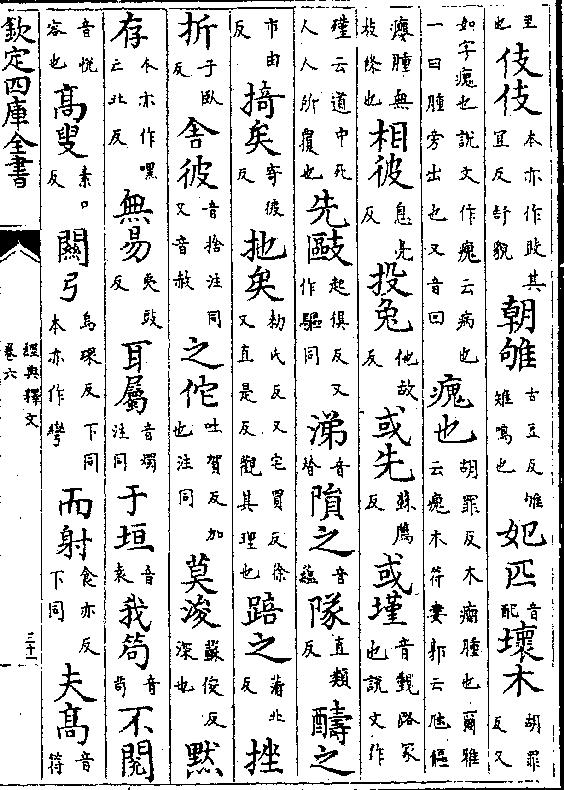 至也伎伎本亦作跂其宜反舒貌朝雊古豆反雊雉鳴也妃匹音配壞木胡罪反又
如字瘣也說文作瘣云病也一曰腫旁出也又音回瘣也胡罪反木瘤腫也爾雅云瘣木符婁郭云尫傴
癭腫無枝條也相彼息亮反投兔他故反或先蘇薦反或墐音覲路冢也說文作
殣云道中死人人所覆也先敺起俱反又作驅同涕音替隕之音蘊隊直類反醻之
市由反掎矣寄彼反扡矣勑氏反又宅買反徐又直是反觀其理也踣之蒲北反挫
折子臥反舍彼音捨注同又音赦之佗吐賀反加也注同莫浚蘇俊反深也默
存本亦作嘿云北反無易夷豉反耳屬音燭注同于垣音袁我笱音苟不閱
音悅容也高叟素口反關弓烏環反下同本亦作彎而射食亦反下同夫高音符
欽定四庫全書
經典釋文
卷六
三十一